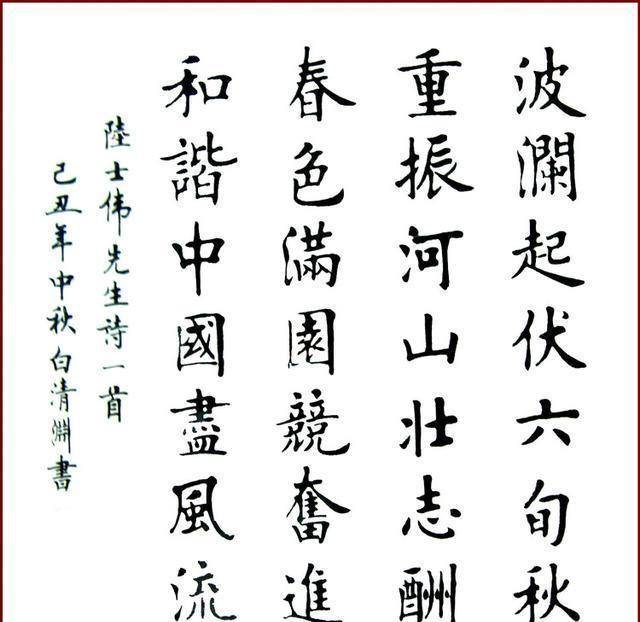 波瀾起伏六旬秋
重振河山壯志酬
春色滿園競奮進
和諧中國盡風流
陸士伟先生詩一首
己丑年中秋白清淵書